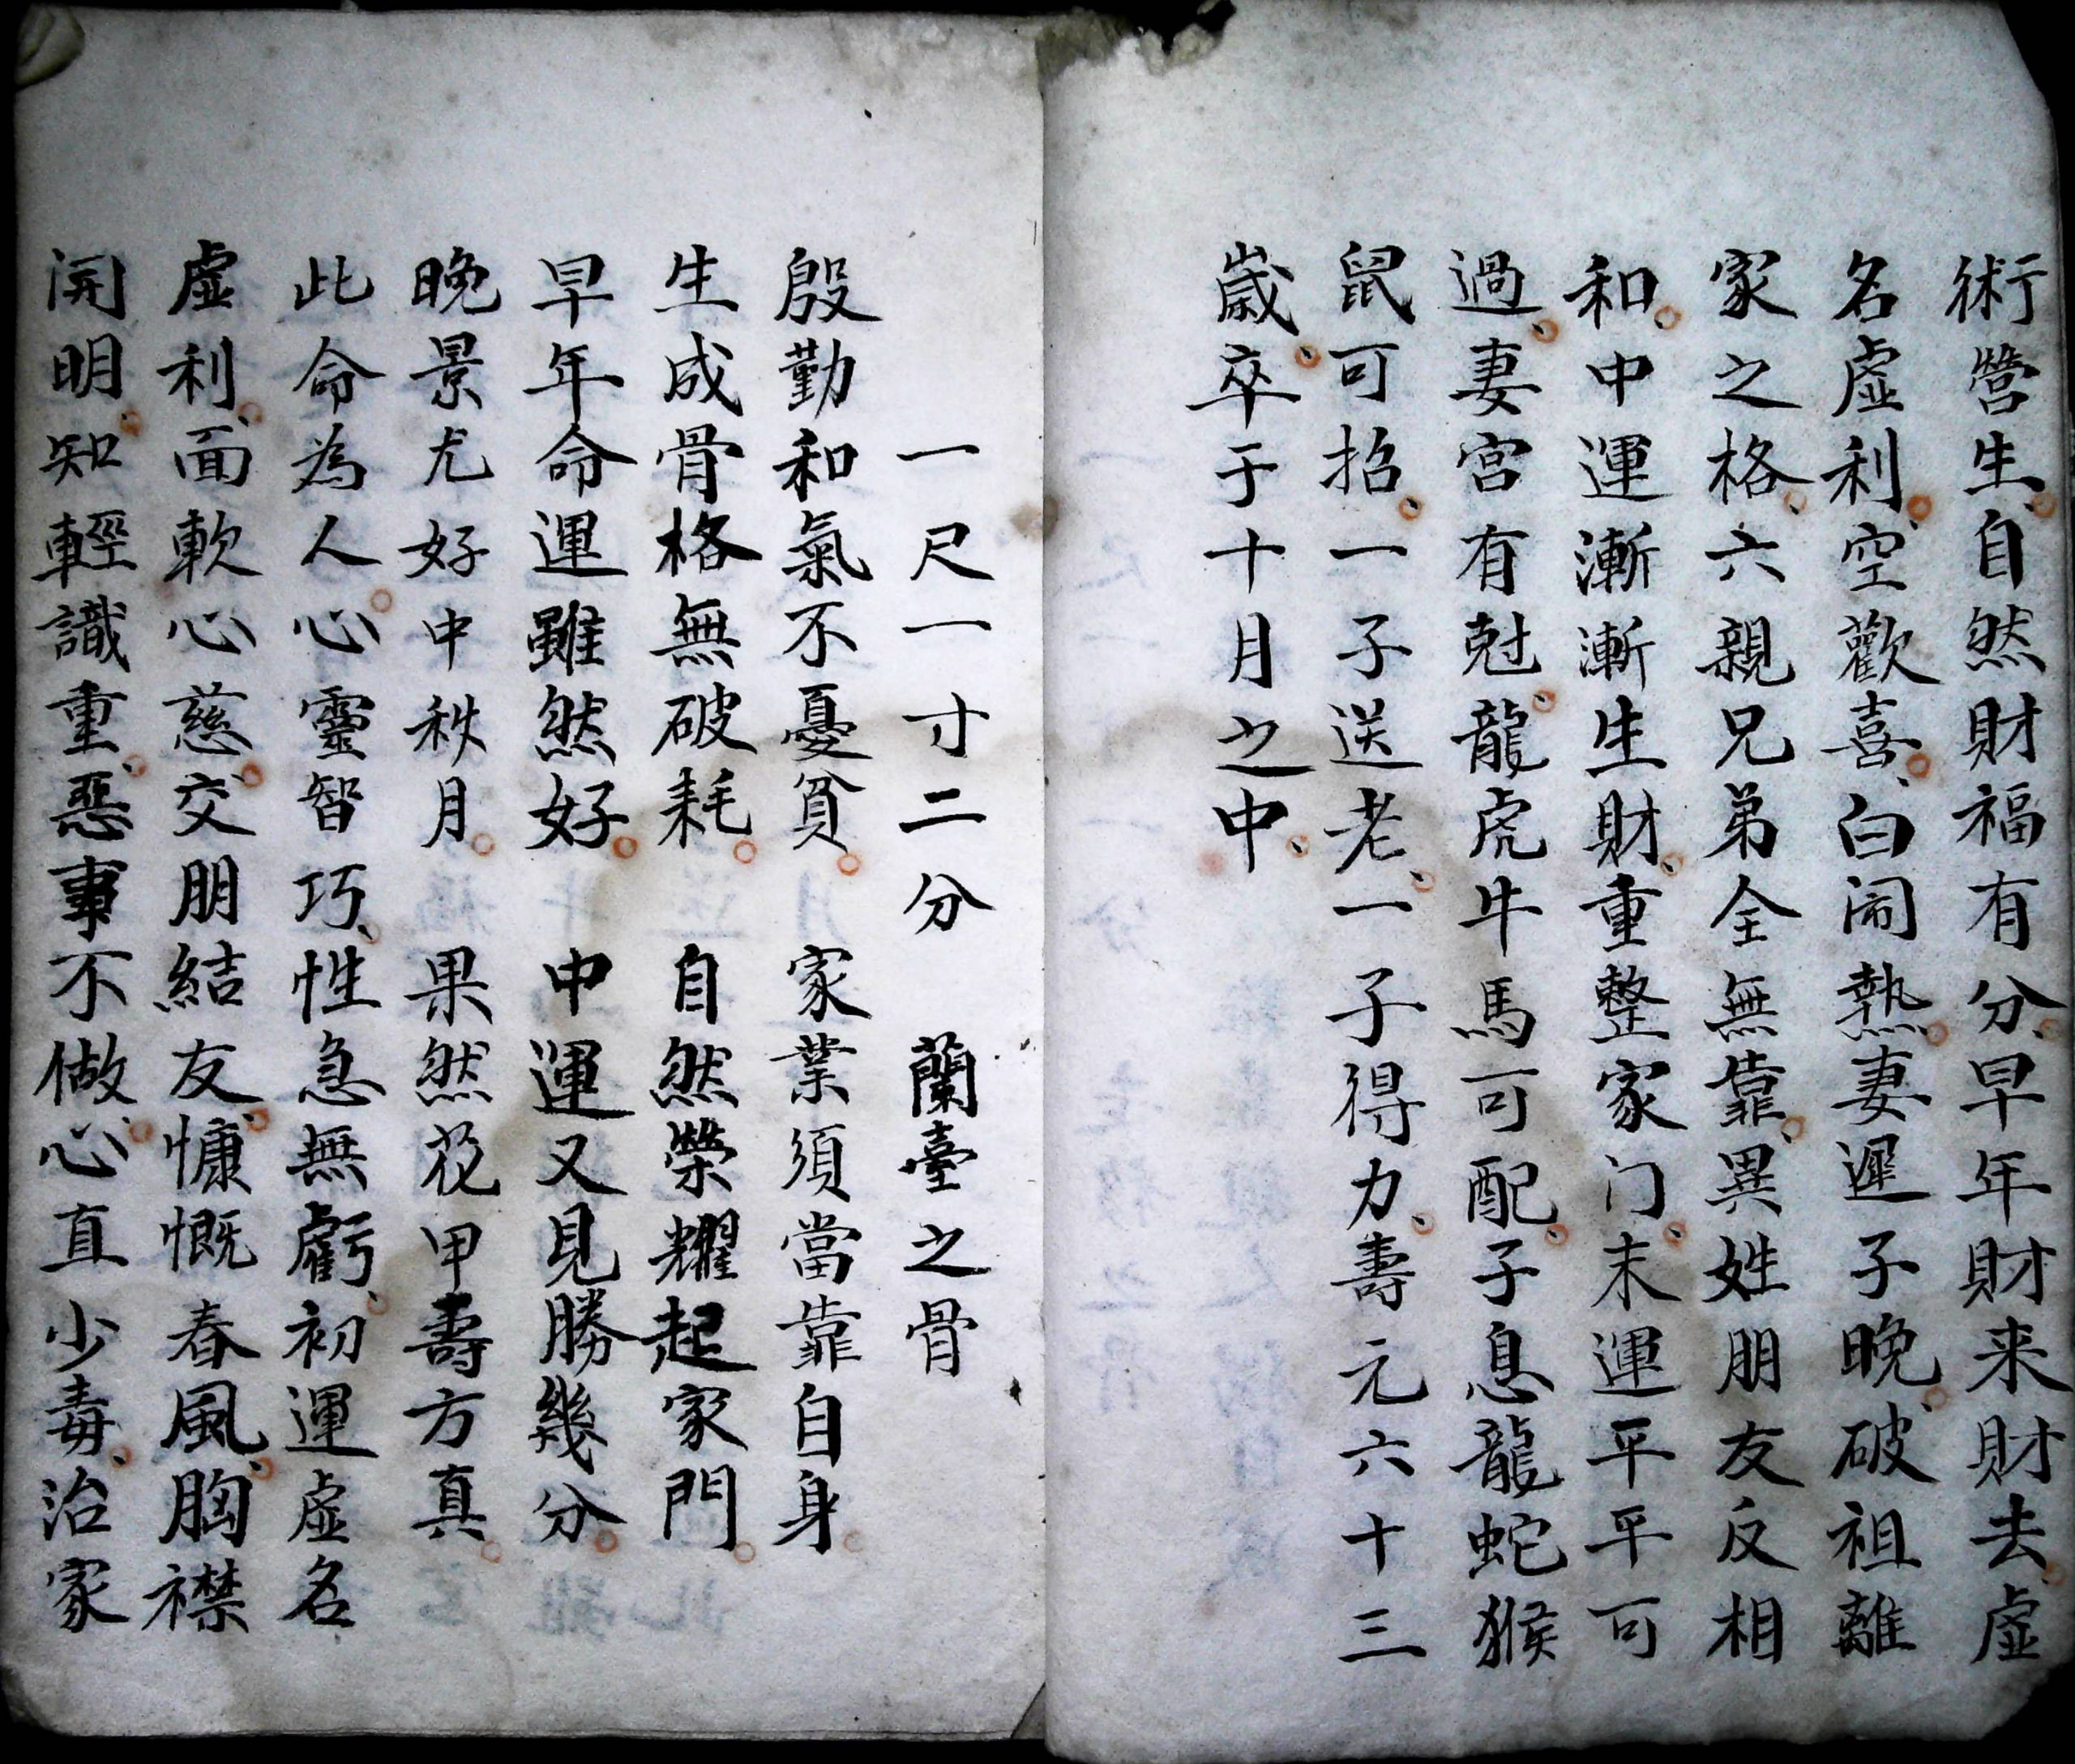 術營生、自然財福有分、早年財来財去、虛
名虛利、空歡喜、白闹熱、妻遲子晚、破祖離
家之格、六親兄弟全無靠、異姓朋友反相
和、中運漸漸生財、重整家门、末運平平可
過、妻宮有尅、龍虎牛馬可配、子息龍蛇猴
鼠可招、一子送老、一子得力、壽元六十三
歲、卒于十月之中、
一尺一寸二分 蘭臺之骨
殷勤和氣不憂貧 家業須當靠自身
生成骨格無破耗 自然榮耀起家門
早年命運雖然好 中運又見勝幾分
晚景尤好中秋月 果然花甲壽方真
此命為人心靈智巧、性急無虧、初運虛名
虛利、面軟心慈、交朋結友、慷慨春風、胸襟
開明、知輕識重、惡事不做、心直少毒、治家